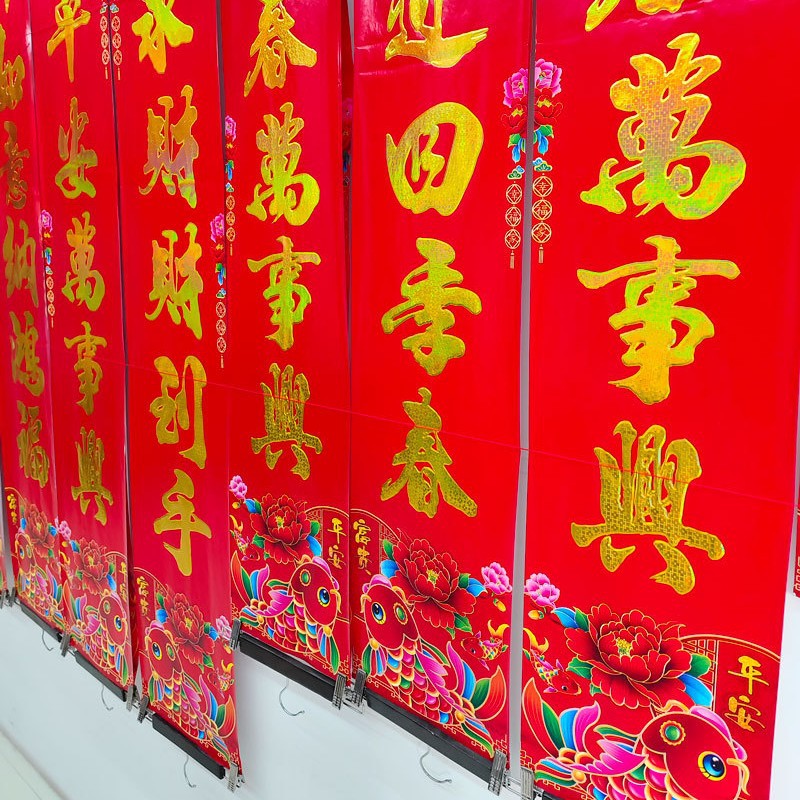 萬事興
平安
幸福家
幸福家
四季春
富貴
春萬事興
平安
求財財到手
富貴
安萬事興
如意納鴻福
富貴